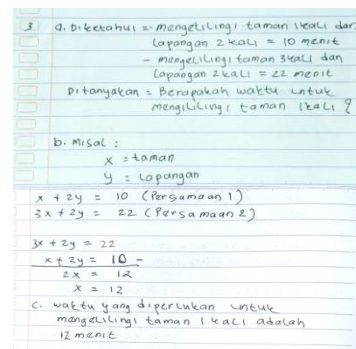 3 a. Diketahui = - mengelilingi taman 1 kali dan
lapangan 2 kali = 10 menit
- mengelilingi taman 3 kali dan
lapangan 2 kali = 22 menit
Ditanyakan = Berapakah waktu untuk
mengililingi taman 1 kali ?
b. misal :
x = taman
y = lapangan
x + 2y = 10 (Persamaan 1)
3x + 2y = 22 (Persamaan 2)
3x + 2y = 22
x + 2y = 10 -
2x = 12
x = 12
c. waktu yang diperlukan untuk
mengelilingi taman 1 kali adalah
12 menit